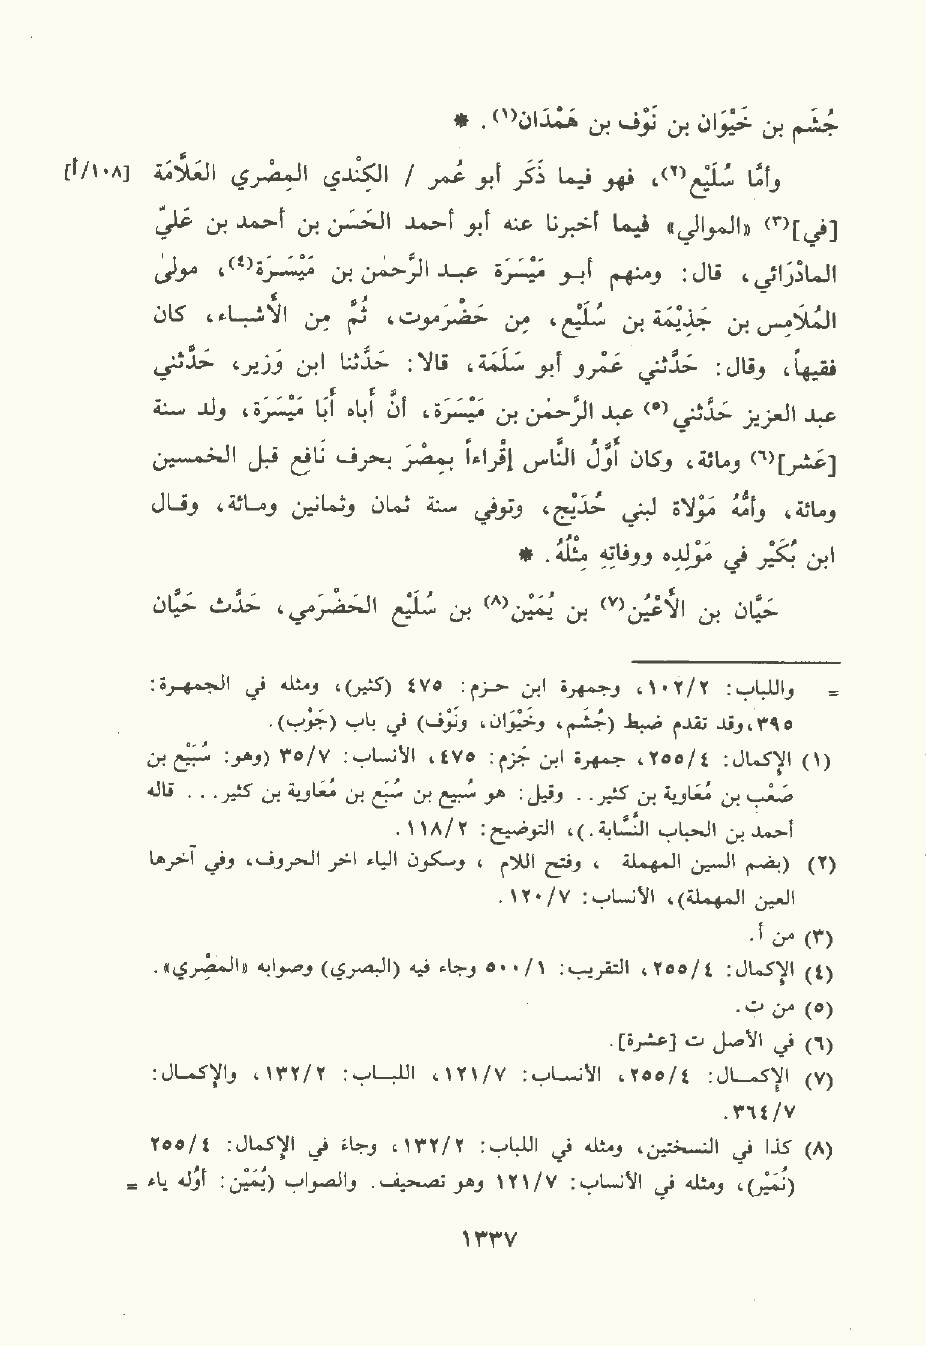 جُشَم بن خَيْوَان بن نَوْف بن هَمْدَان(١). *
وأمَّا سُلَيْع(٢)، فهو فيما ذَكَرَ أبو عُمر / الكِنْدي المصْري العَلَّامَة [١٠٨/أ]
[في](٣) «الموالي» فيما أخبرنا عنه أبو أحمد الحَسَن بن أحمد بن عَليّ
الماذْرَائي، قال: ومنهم أبو مَيْسَرَة عبد الرَّحمن بن مَيْسَرَة(٤)، مولىٰ
المُلَامِس بن جَذِيْمَة بن سُلَيْع، من حَضْرَموت، ثُمَّ من الأشباء، كان
فقيهاً، وقال: حَدَّثني عَمْرو أبو سَلَمَة، قالا: حَدَّثنا ابن وَزير، حَدَّثني
عبد العزيز حَدَّثني(٥) عبد الرَّحمن بن مَيْسَرَة، أن أباه أَبَا مَيْسَرَة، ولد سنة
[عَشر](٦) ومائة، وكان أوَّلُ النَّاس إقْراءاً بمصْرَ بحرف نَافع قبل الخمسين
ومائة، وأمُّهُ مَوْلاة لبني خُدَيْج، وتوفي سنة ثمان وثمانين ومائة، وقال
ابن بُكَيْر في مَوْلِدِه ووفاتِهِ مِثْلُهُ. *
حَيَّان بن الأعْيُن(٧) بن يُمَيْن(٨) بن سُلَيْع الحَضْرَمي، حَدَّث حَيَّان
= واللباب: ١٠٢/٢، وجمهرة ابن حزم: ٤٧٥ (كثير)، ومثله في الجمهرة:
٣٩٥، وقد تقدم ضبط (جُشَم)، وخَيْوَان، ونَوْف) في باب (جَوْب).
(١) الإكمال: ٢٥٥/٤، جمهرة ابن حَزم: ٤٧٥، الأنساب: ٣٥/٧ (وهو: سُبَيْع بن
صَعْب بن مُعَاوية بن كثير.. وقيل: هو سُبيع بن سُبَع بن مُعَاوية بن كثير... قاله
أحمد بن الحباب النَّسَّابة.)، التوضيح: ١١٨/٢.
(٢) (بضم السين المهملة، وفتح اللام، وسكون الياء اخر الحروف، وفي آخرها
العين المهملة)، الأنساب: ١٢٠/٧.
(٣) من أ.
(٤) الإكمال: ٢٥٥/٤، التقريب: ٥٠٠/١ وجاء فيه (البصري) وصوابه «المصْري».
(٥) من ت.
(٦) في الأصل ت [عشرة].
(٧) الإكمال: ٢٥٥/٤، الأنساب: ١٢١/٧، اللباب: ١٣٢/٢، والإكمال:
٣٦٤/٧.
(٨) كذا في النسختين، ومثله في اللباب: ١٣٢/٢، وجاءَ في الإكمال: ٢٥٥/٤
(نُمَيْر)، ومثله في الأنساب: ١٢١/٧ وهو تصحيف. والصواب (يُمَيْن: أوّله ياء =
١٣٣٧